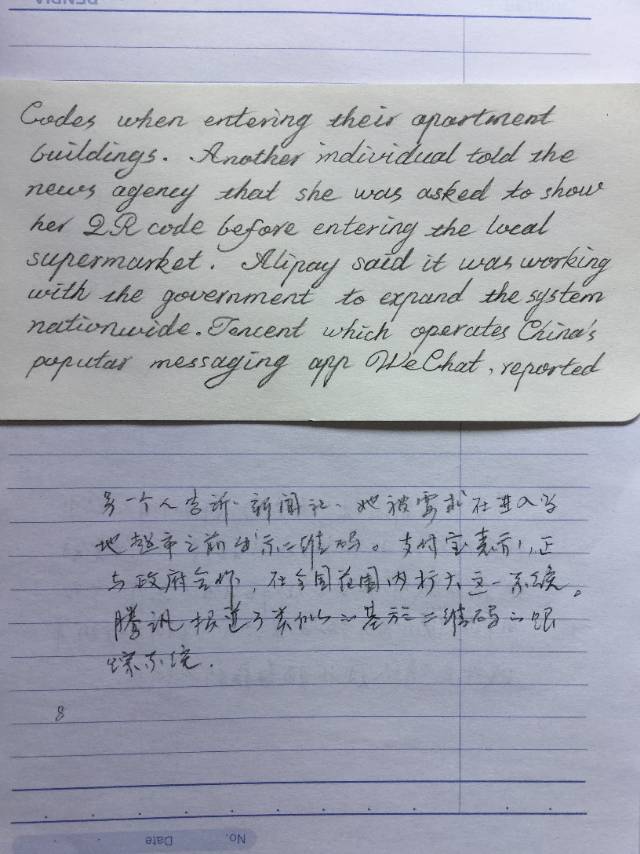 Codes when entering their apartment
buildings. Another individual told the
news agency that she was asked to show
her QR code before entering the local
supermarket. Alipay said it was working
with the government to expand the system
nationwide. Tencent which operates China's
popular messaging app WeChat, reported
另一个人告诉新闻社.她被要求在进入当
地超市之前出示二维码。支付宝表示,正
与政府合作,在全国范围内扩大这一系统。
腾讯报道了类似的基于二维码的跟
踪系统.
8
No. Date